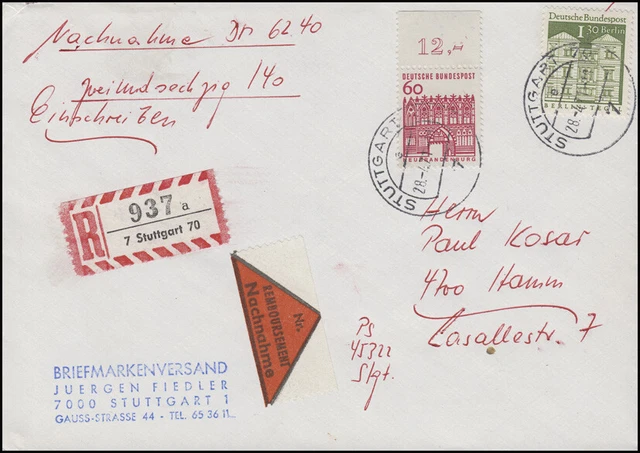 Nachnahme DM 62.40
zweiundsechzig /40
Einschreiben
12,-
DEUTSCHE BUNDESPOST
60
NEUBRANDENBURG
Deutsche Bundespost
1 30 Berlin
BERLIN TEGEL
STUTTGART
28.-4.
STUTTGART
28.-4.
R
937 a
7 Stuttgart 70
Nr.
REMBOURSEMENT
Nachnahme
Herrn
Paul Kosar
4700 Hamm
Lasallestr. 7
PS
45322
Stgt.
BRIEFMARKENVERSAND
JUERGEN FIEDLER
7000 STUTTGART 1
GAUSS-STRASSE 44 - TEL. 65 36 11